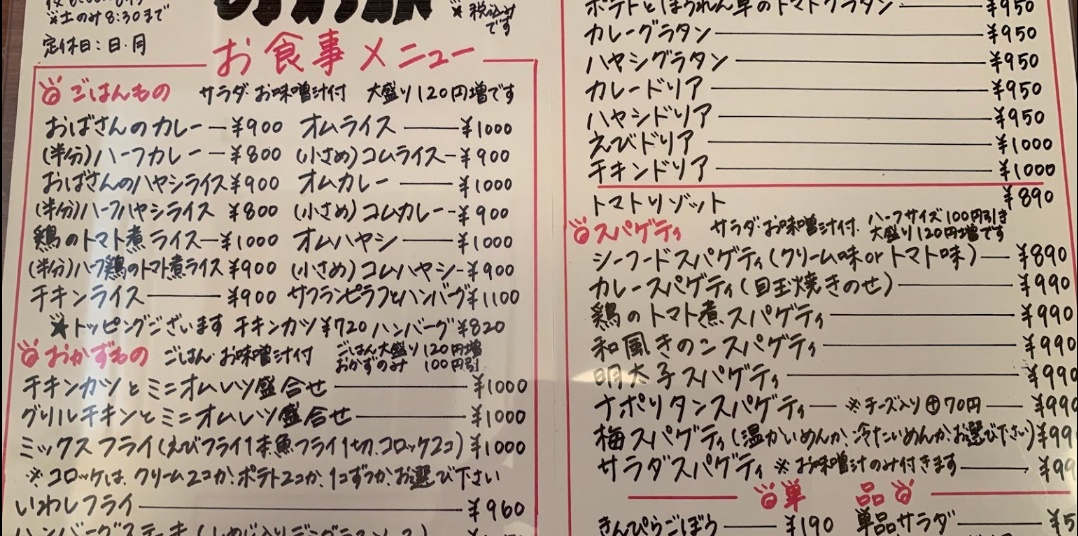 ※土のみ8:30まで
※税込み
です
定休日：日・月
お食事メニュー
ごはんもの サラダ・お味噌汁付 大盛り120円増です
おばさんのカレー ¥900 オムライス ¥1000
(半分)ハーフカレー ¥800 (小さめ)コムライス ¥900
おばさんのハヤシライス ¥900 オムカレー ¥1000
(半分)ハーフハヤシライス ¥800 (小さめ)コムカレー ¥900
鶏のトマト煮ライス ¥1000 オムハヤシ ¥1000
(半分)ハーフ鶏のトマト煮ライス ¥900 (小さめ)コムハヤシ ¥900
チキンライス ¥900 サフランピラフとハンバーグ ¥1100
★トッピングございます チキンカツ ¥720 ハンバーグ ¥820
おかずもの ごはん・お味噌汁付 ごはん大盛り120円増
おかずのみ 100円引
チキンカツとミニオムレツ盛合せ ¥1000
グリルチキンとミニオムレツ盛合せ ¥1000
ミックスフライ(えびフライ1本魚フライ1切、コロッケ2コ) ¥1000
※コロッケは、クリーム2コか、ポテト2コか、1コずつか、お選び下さい
いわしフライ ¥960
ポテトとほうれん草のトマトグラタン ¥950
カレーグラタン ¥950
ハヤシグラタン ¥950
カレードリア ¥950
ハヤシドリア ¥950
えびドリア ¥1000
チキンドリア ¥1000
トマトリゾット ¥890
スパゲティ サラダ・お味噌汁付. ハーフサイズ100円引き
大盛り120円増です
シーフードスパゲティ(クリーム味orトマト味) ¥890
カレースパゲティ(目玉焼きのせ) ¥990
鶏のトマト煮スパゲティ ¥990
和風きのこスパゲティ ¥990
明太子スパゲティ ¥990
ナポリタンスパゲティ ※チーズ入り⊕70円 ¥990
梅スパゲティ(温かいめんか、冷たいめんか、お選び下さい) ¥99
サラダスパゲティ ※お味噌汁のみ付きます ¥99
単品
きんぴらごぼう ¥190 単品サラダ ¥5